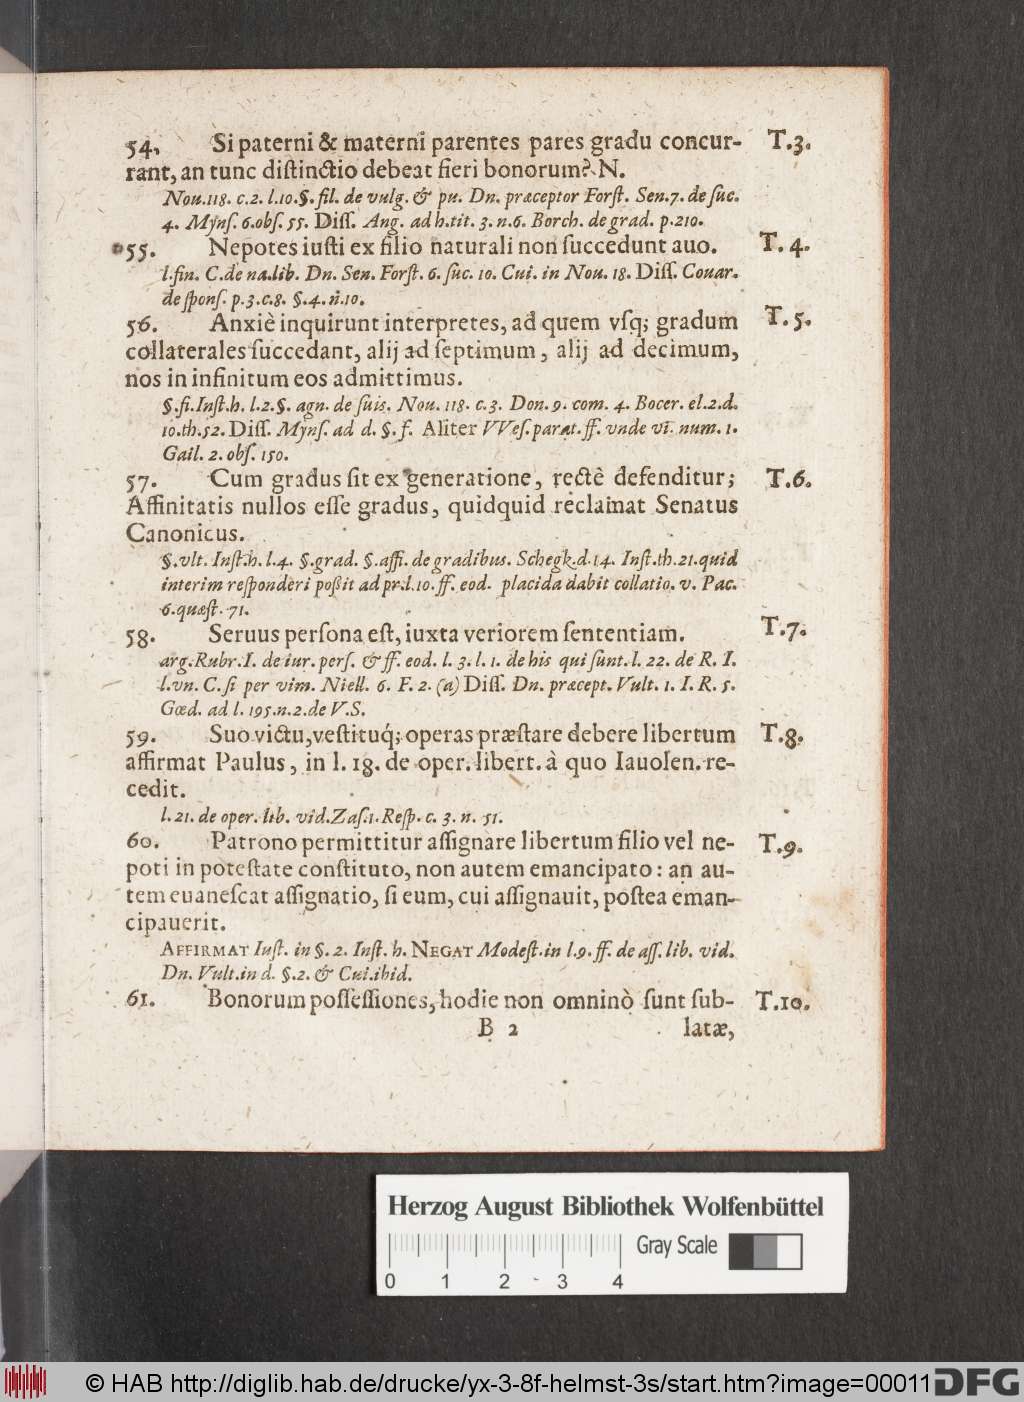 54. Si paterni & materni parentes pares gradu concur- T.3.
rant, an tunc distinctio debeat fieri bonorum? N.
Nou. 118. c. 2. l. 10. §. fil. de vulg. & pu. Dn. præceptor Forst. Sen. 7. de suc.
4. Myns. 6. obs. 55. Diss. Ang. ad h. tit. 3. n. 6. Borch. de grad. p. 210.
55. Nepotes iusti ex filio naturali non succedunt auo. T. 4.
l. fin. C. de na. lib. Dn. Sen. Forst. 6. suc. 10. Cui. in Nou. 18. Diss. Couar.
de spons. p. 3. c. 8. §. 4. n. 10.
56. Anxiè inquirunt interpretes, ad quem vsq; gradum T. 5.
collaterales succedant, alij ad septimum, alij ad decimum,
nos in infinitum eos admittimus.
§. fi. Inst. h. l. 2. §. agn. de suis. Nou. 118. c. 3. Don. 9. com. 4. Bocer. el. 2. d.
10. th. 52. Diss. Myns. ad d. §. f. Aliter VVes. parat. ff. vnde vi. num. 1.
Gail. 2. obs. 150.
57. Cum gradus sit ex generatione, rectè defenditur; T.6.
Affinitatis nullos esse gradus, quidquid reclamat Senatus
Canonicus.
§. vlt. Inst. h. l. 4. §. grad. §. affi. de gradibus. Schegk. d. 14. Inst. th. 21. quid
interim responderi poßit ad pr. l. 10. ff. eod. placida dabit collatio. v. Pac.
6. quæst. 71.
58. Seruus persona est, iuxta veriorem sententiam. T.7.
arg. Rubr. I. de iur. pers. & ff. eod. l. 3. l. 1. de his qui sunt. l. 22. de R. I.
l. vn. C. si per vim. Niell. 6. F. 2. (a) Diss. Dn. præcept. Vult. 1. I. R. 5.
Gœd. ad l. 195. n. 2. de V.S.
59. Suo victu, vestituq́; operas præstare debere libertum T.8.
affirmat Paulus, in l. 18. de oper. libert. à quo Iauolen. re-
cedit.
l. 21. de oper. lib. vid. Zas. 1. Resp. c. 3. n. 51.
60. Patrono permittitur assignare libertum filio vel ne- T.9.
poti in potestate constituto, non autem emancipato: an au-
tem euanescat assignatio, si eum, cui assignauit, postea eman-
cipauerit.
AFFIRMAT Iust. in §. 2. Inst. h. NEGAT Modest. in l. 9. ff. de ass. lib. vid.
Dn. Vult. in d. §. 2. & Cui. ibid.
61. Bonorum possessiones, hodie non omninò sunt sub- T.10.
B 2 latæ,
Herzog August Bibliothek Wolfenbüttel
0 1 2 3 4 Gray Scale
© HAB http://diglib.hab.de/drucke/yx-3-8f-helmst-3s/start.htm?image=00011 DFG